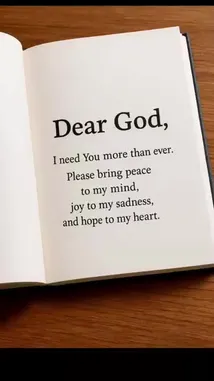 Dear God,
I need You more than ever.
Please bring peace
to my mind,
joy to my sadness,
and hope to my heart.